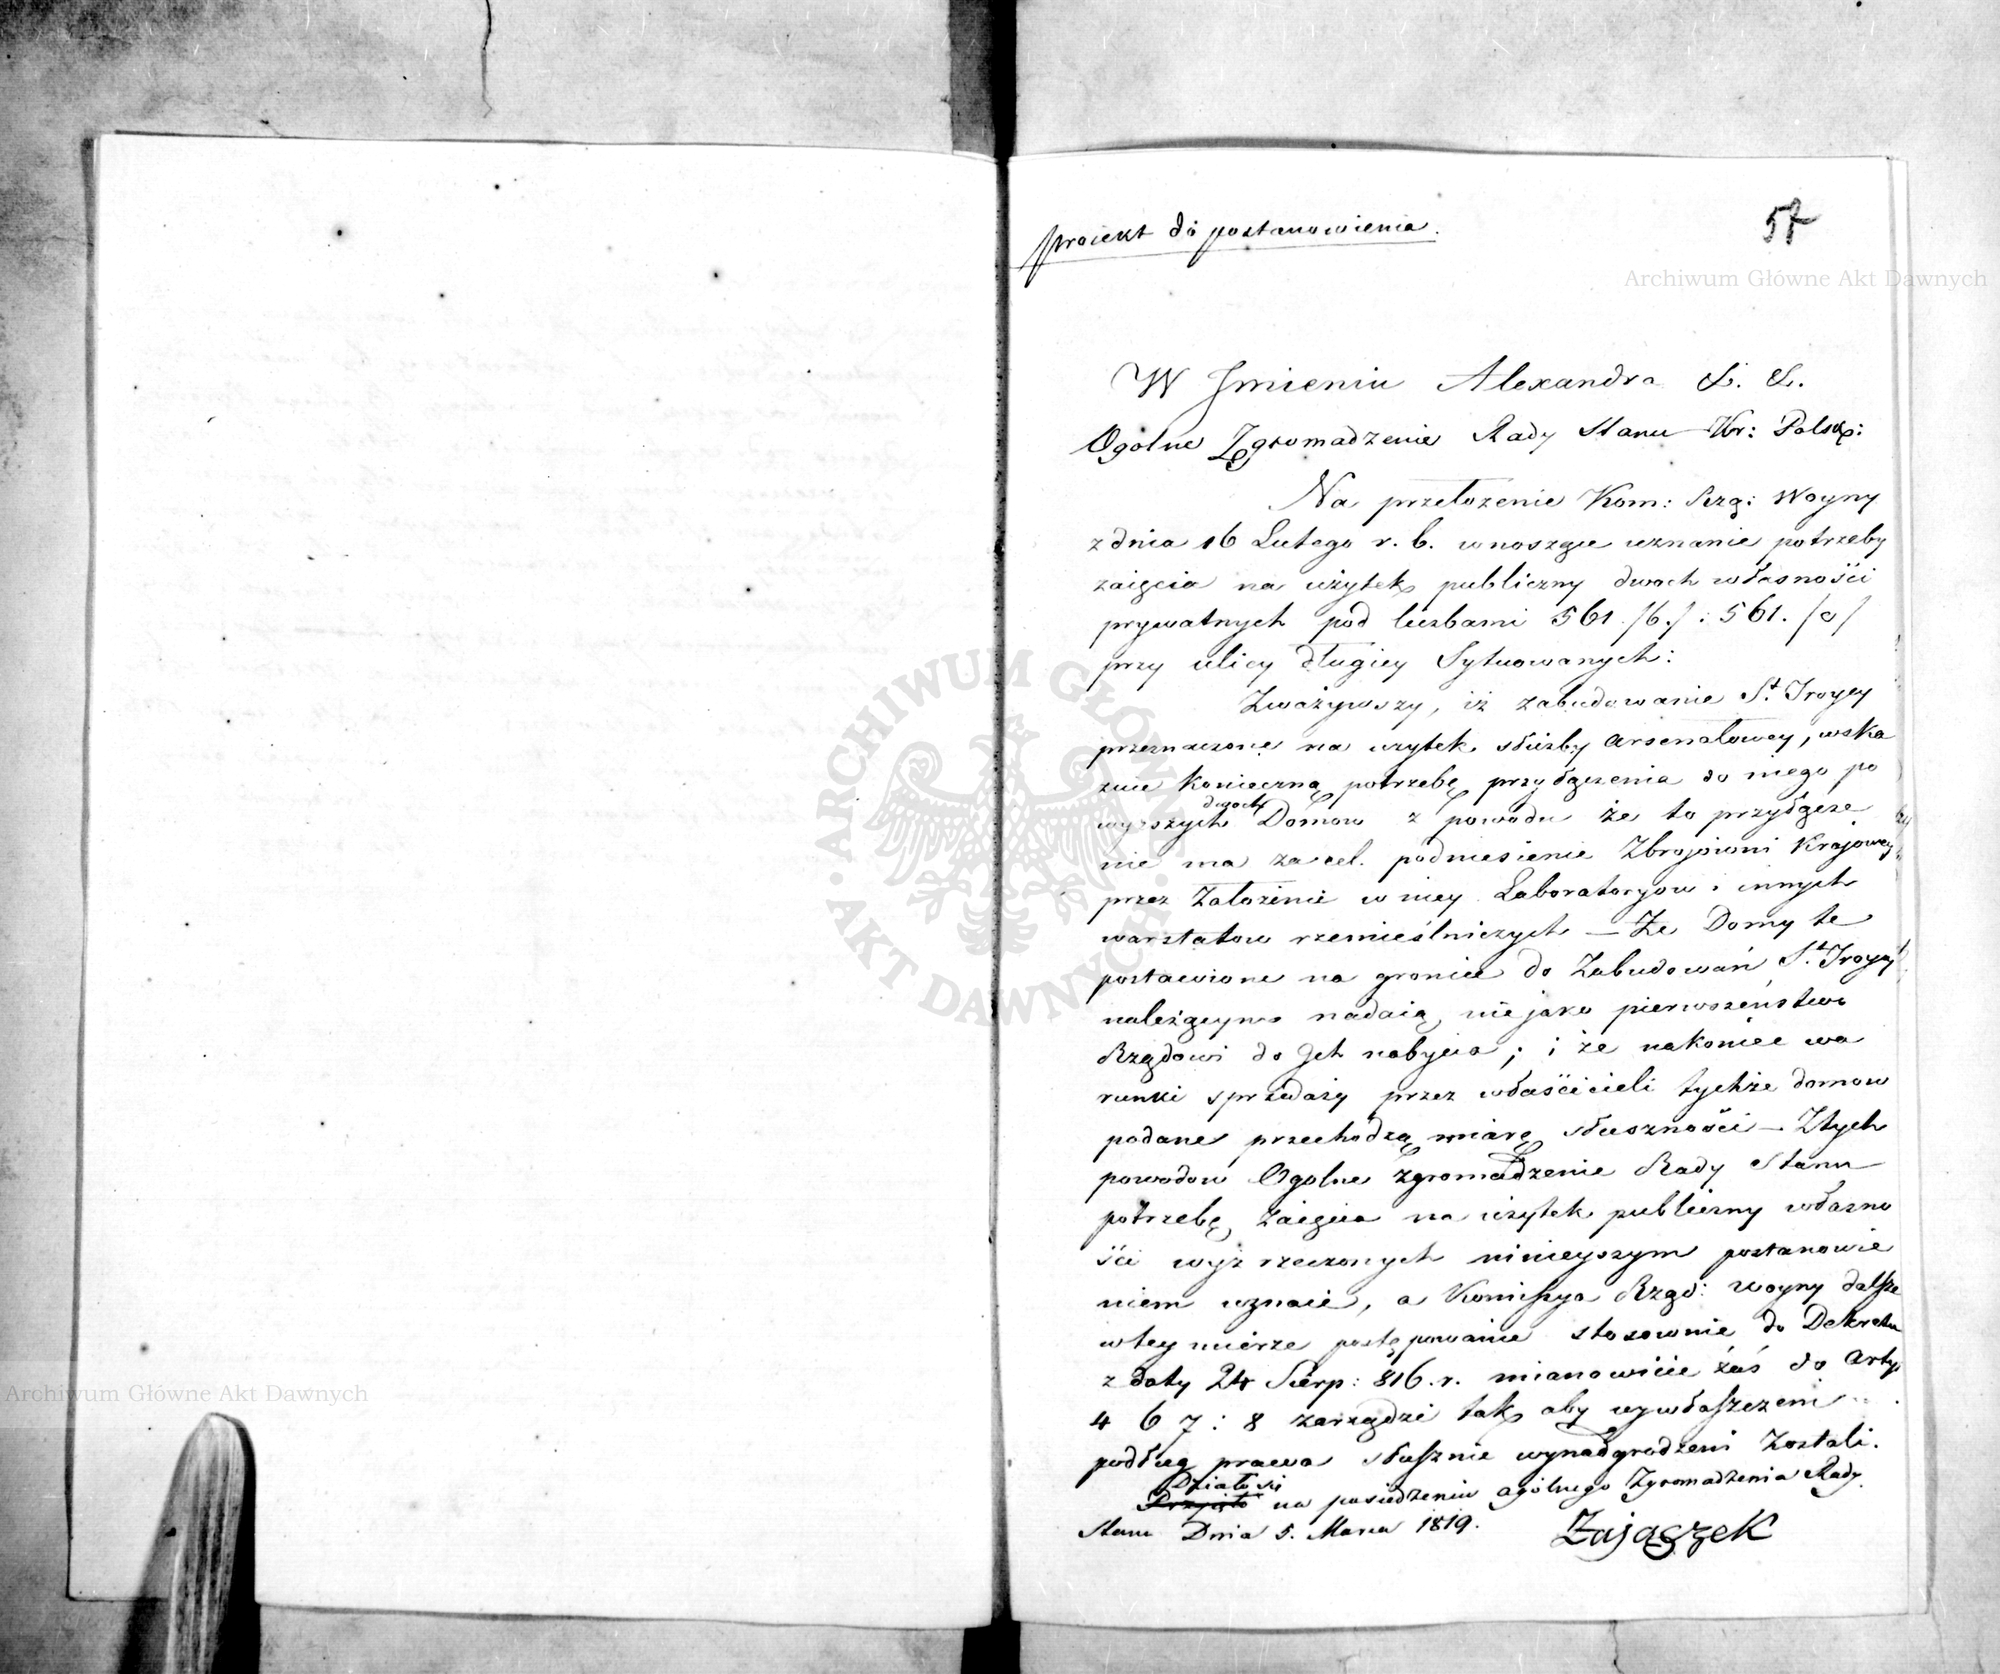 proiekt do postanowienia.
57
Archiwum Główne Akt Dawnych
W Imieniu Alexandra &. &.
Ogolne Zgromadzenie Rady Stanu Kr: Polsk:
Na przełozenie Kom: Rzą: Woyny
z dnia 16 Lutego r. b. wnoszące uznanie potrzeby
zaięcia na użytek publiczny dwoch własności
prywatnych pod liczbami 561 /b./ : 561. /c/
przy ulicy długiey Sytuowanych:
Zważywszy, iż zabudowanie St. Troycy
przeznaczone na uzytek służby Arsenałowey, wska
zuie konieczną potrzebę przyłączenia do niego po
wyższych dwoch Domow z powodu że to przyłącze
nie ma za cel. podniesienie Zbrojowni Krajowey
przez Założenie w niey Laboratoryow i innych
warsztatow rzemieślniczych — Że Domy te
postawione na gronice do Zabudowań St. Troycy
należącym nadaią nieiako pierwszeństwo
Rządowi do Ich nabycia ; i że nakoniec wa
runki sprzedaży przez właścicieli tychże domow
podane przechodzą miarę słuszności — Z tych
powodow Ogolne Zgromadzenie Rady Stanu
potrzebę zaięcia na użytek publiczny własno
ści wyż rzeczonych ninieyszym postanowie
niem uznaie, a Kommissya Rząd: Woyny dalsze
w tey mierze postępowanie stosownie do Dekretu
z daty 24 Sierp: 816. r. mianowicie zaś do Arty
4 6 7 : 8 zarządzi tak aby wywłaszczeni
podług prawa słusznie wynadgrodzeni zostali.
Działo się
Przyięto na posiedzeniu ogólnego Zgromadzenia Rady
Stanu Dnia 5. Marca 1819.
Zajączek
ARCHIWUM GŁÓWNE AKT DAWNYCH
Archiwum Główne Akt Dawnych